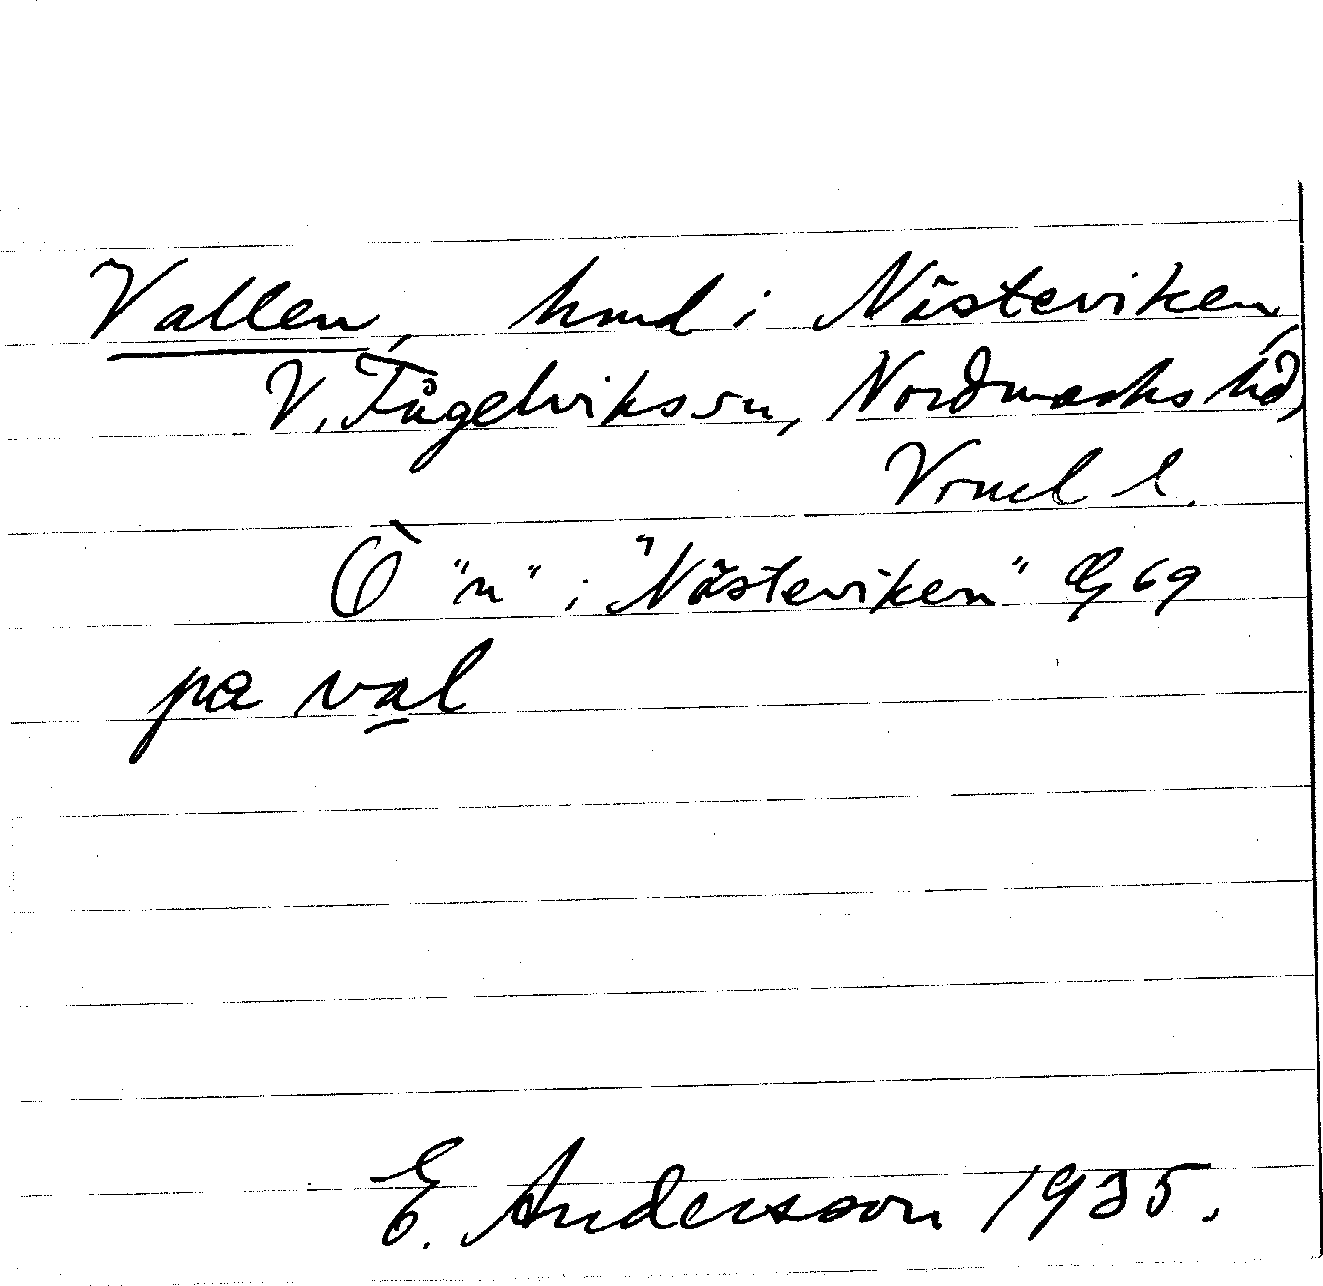 Vallen, hmd i Nästeviken,
V. Fågelviks sn, Nordmarks hd,
Vrml l.
Ö "n" i "Nästeviken" Eg 69
pa val
E. Andersson 1935.